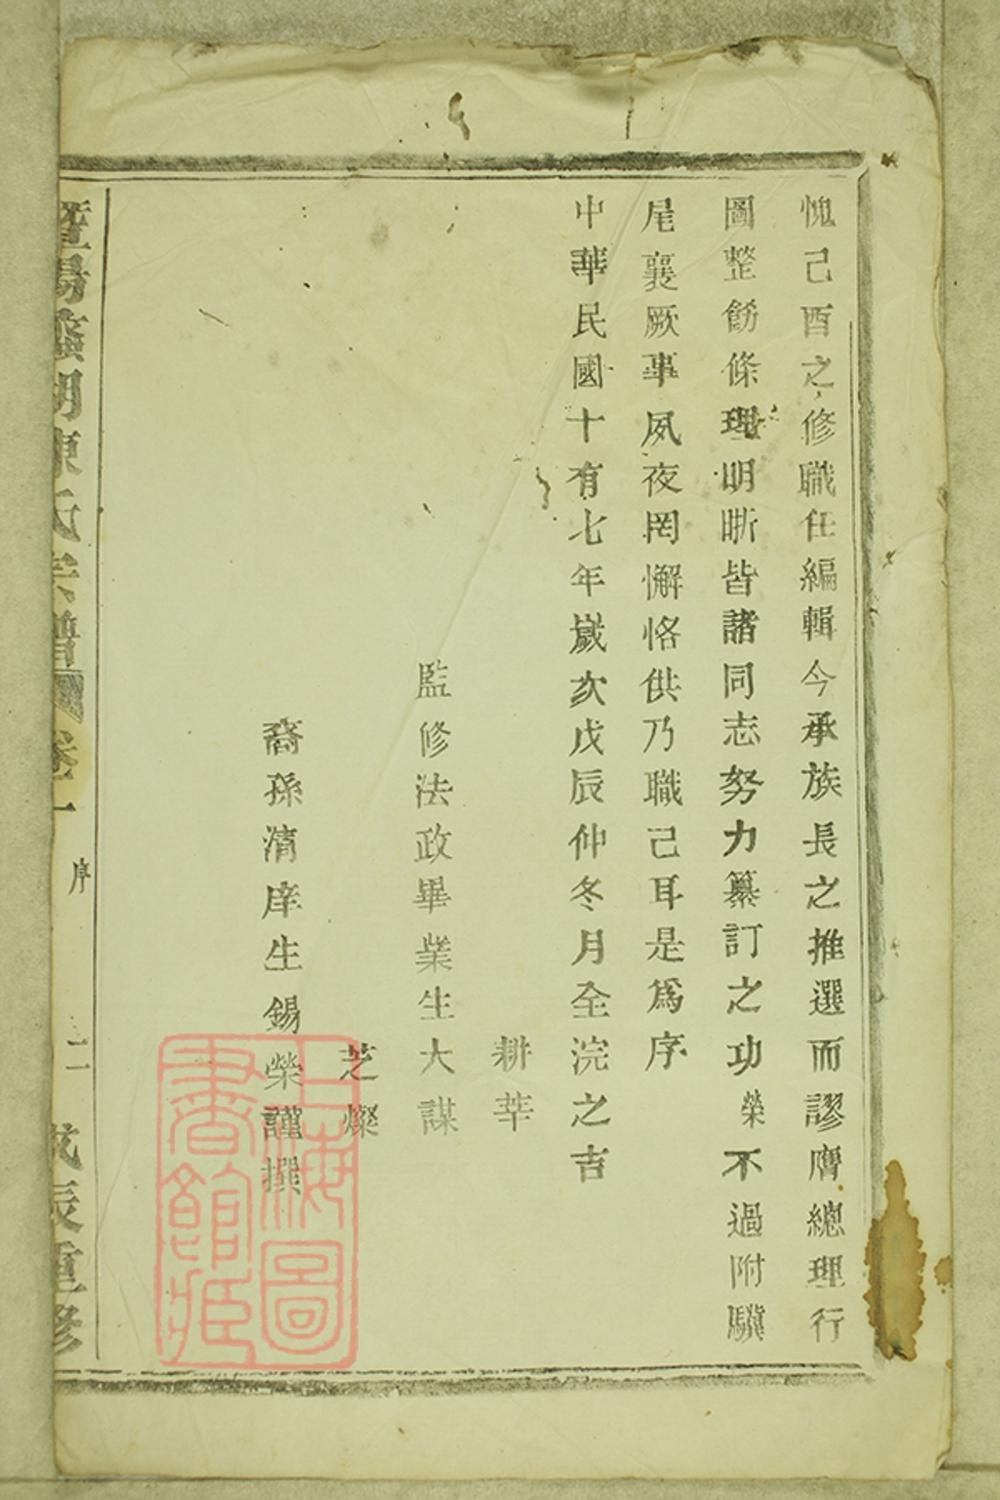 愧己酉之修職任編輯今承族長之推選而謬膺總理行
圖整飭條理明晰皆諸同志努力纂訂之功榮不過附驥
尾襄厥事夙夜罔懈恪供乃職己耳是爲序
中華民國十有七年歲次戊辰仲冬月全浣之吉
耕莘
監修法政畢業生大謀
芝燦
裔孫清庠生錫榮謹撰
暨陽 湖陳氏宗譜 卷一 序 二 戊辰重修
上海圖書館藏